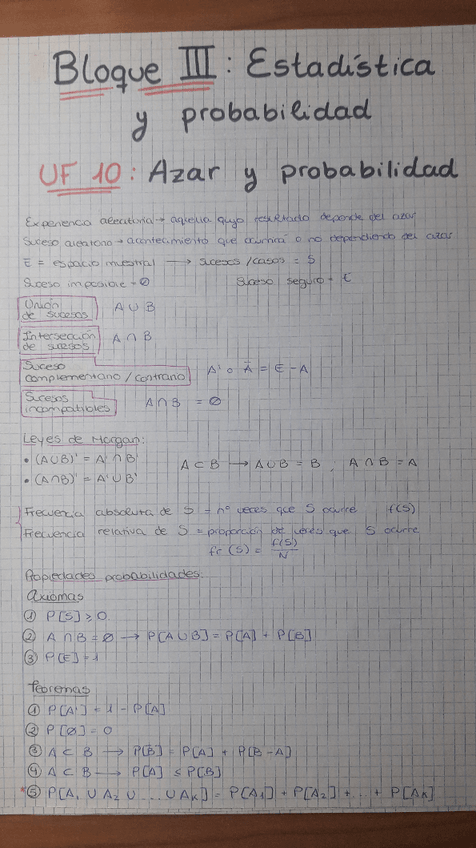 Bloque III: Estadística
y probabilidad
UF 10: Azar y probabilidad
Experiencia aleatoria → aquella cuyo resultado depende del azar
Suceso aleatorio → acontecimiento que ocurrirá o no dependiendo del azar
E = espacio muestral → sucesos/casos = S
Suceso imposible = Ø Suceso seguro = E
Unión de sucesos A ∪ B
Intersección de sucesos A ∩ B
Suceso complementario/contrario A' o Ā = E - A
Sucesos incompatibles A ∩ B = Ø
Leyes de Morgan:
• (A∪B)' = A' ∩ B'
A ⊂ B → A∪B = B, A ∩ B = A
• (A∩B)' = A' ∪ B'
Frecuencia absoluta de S = nº veces que S ocurre f(S)
Frecuencia relativa de S = proporción de veces que S ocurre
fr(S) = f(S)/N
Propiedades probabilidades
Axiomas
① P[S] ≥ 0
② A ∩ B = Ø → P[A∪B] = P[A] + P[B]
③ P[E] = 1
Teoremas
① P[A'] = 1 - P[A]
② P[Ø] = 0
③ A ⊂ B → P[B] = P[A] + P[B-A]
④ A ⊂ B → P[A] ≤ P[B]
⑤ P[A₁ ∪ A₂ ∪ ... ∪ Aₖ] = P[A₁] + P[A₂] + ... + P[Aₖ]